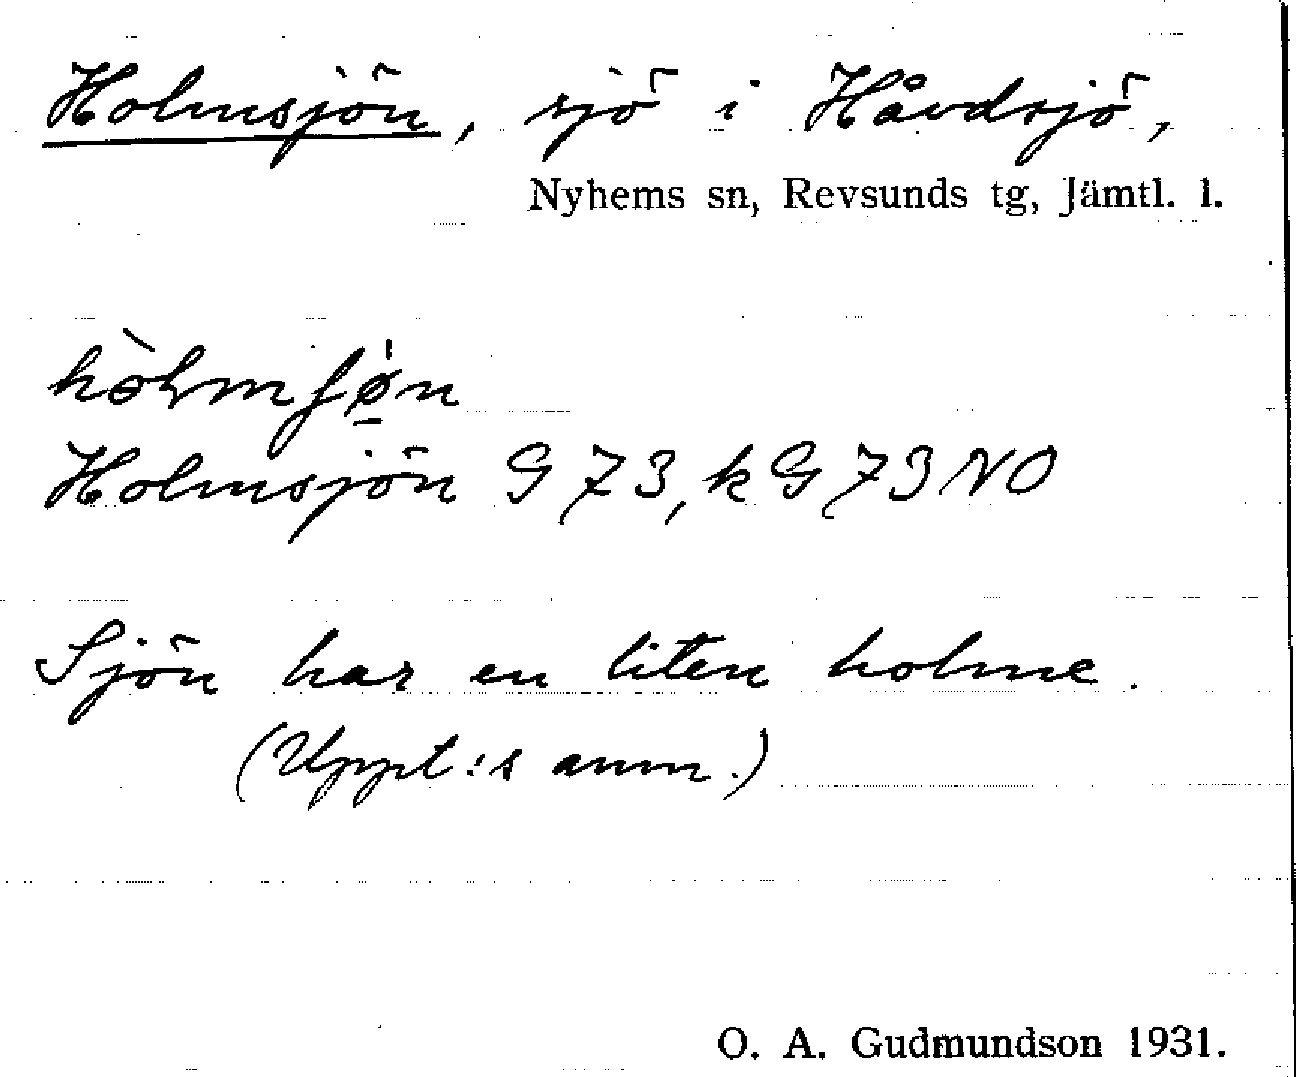 Holmsjön, sjö i Håvdsjö,
Nyhems sn, Revsunds tg, Jämtl. l.
hòlmʃø̱n
Holmsjön G 73, k G 73 NO
Sjön har en liten holme.
(Uppt:s anm.)
O. A. Gudmundson 1931.